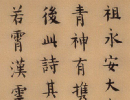 祖永安大
青神有携
後此詩其
若霄漢雲